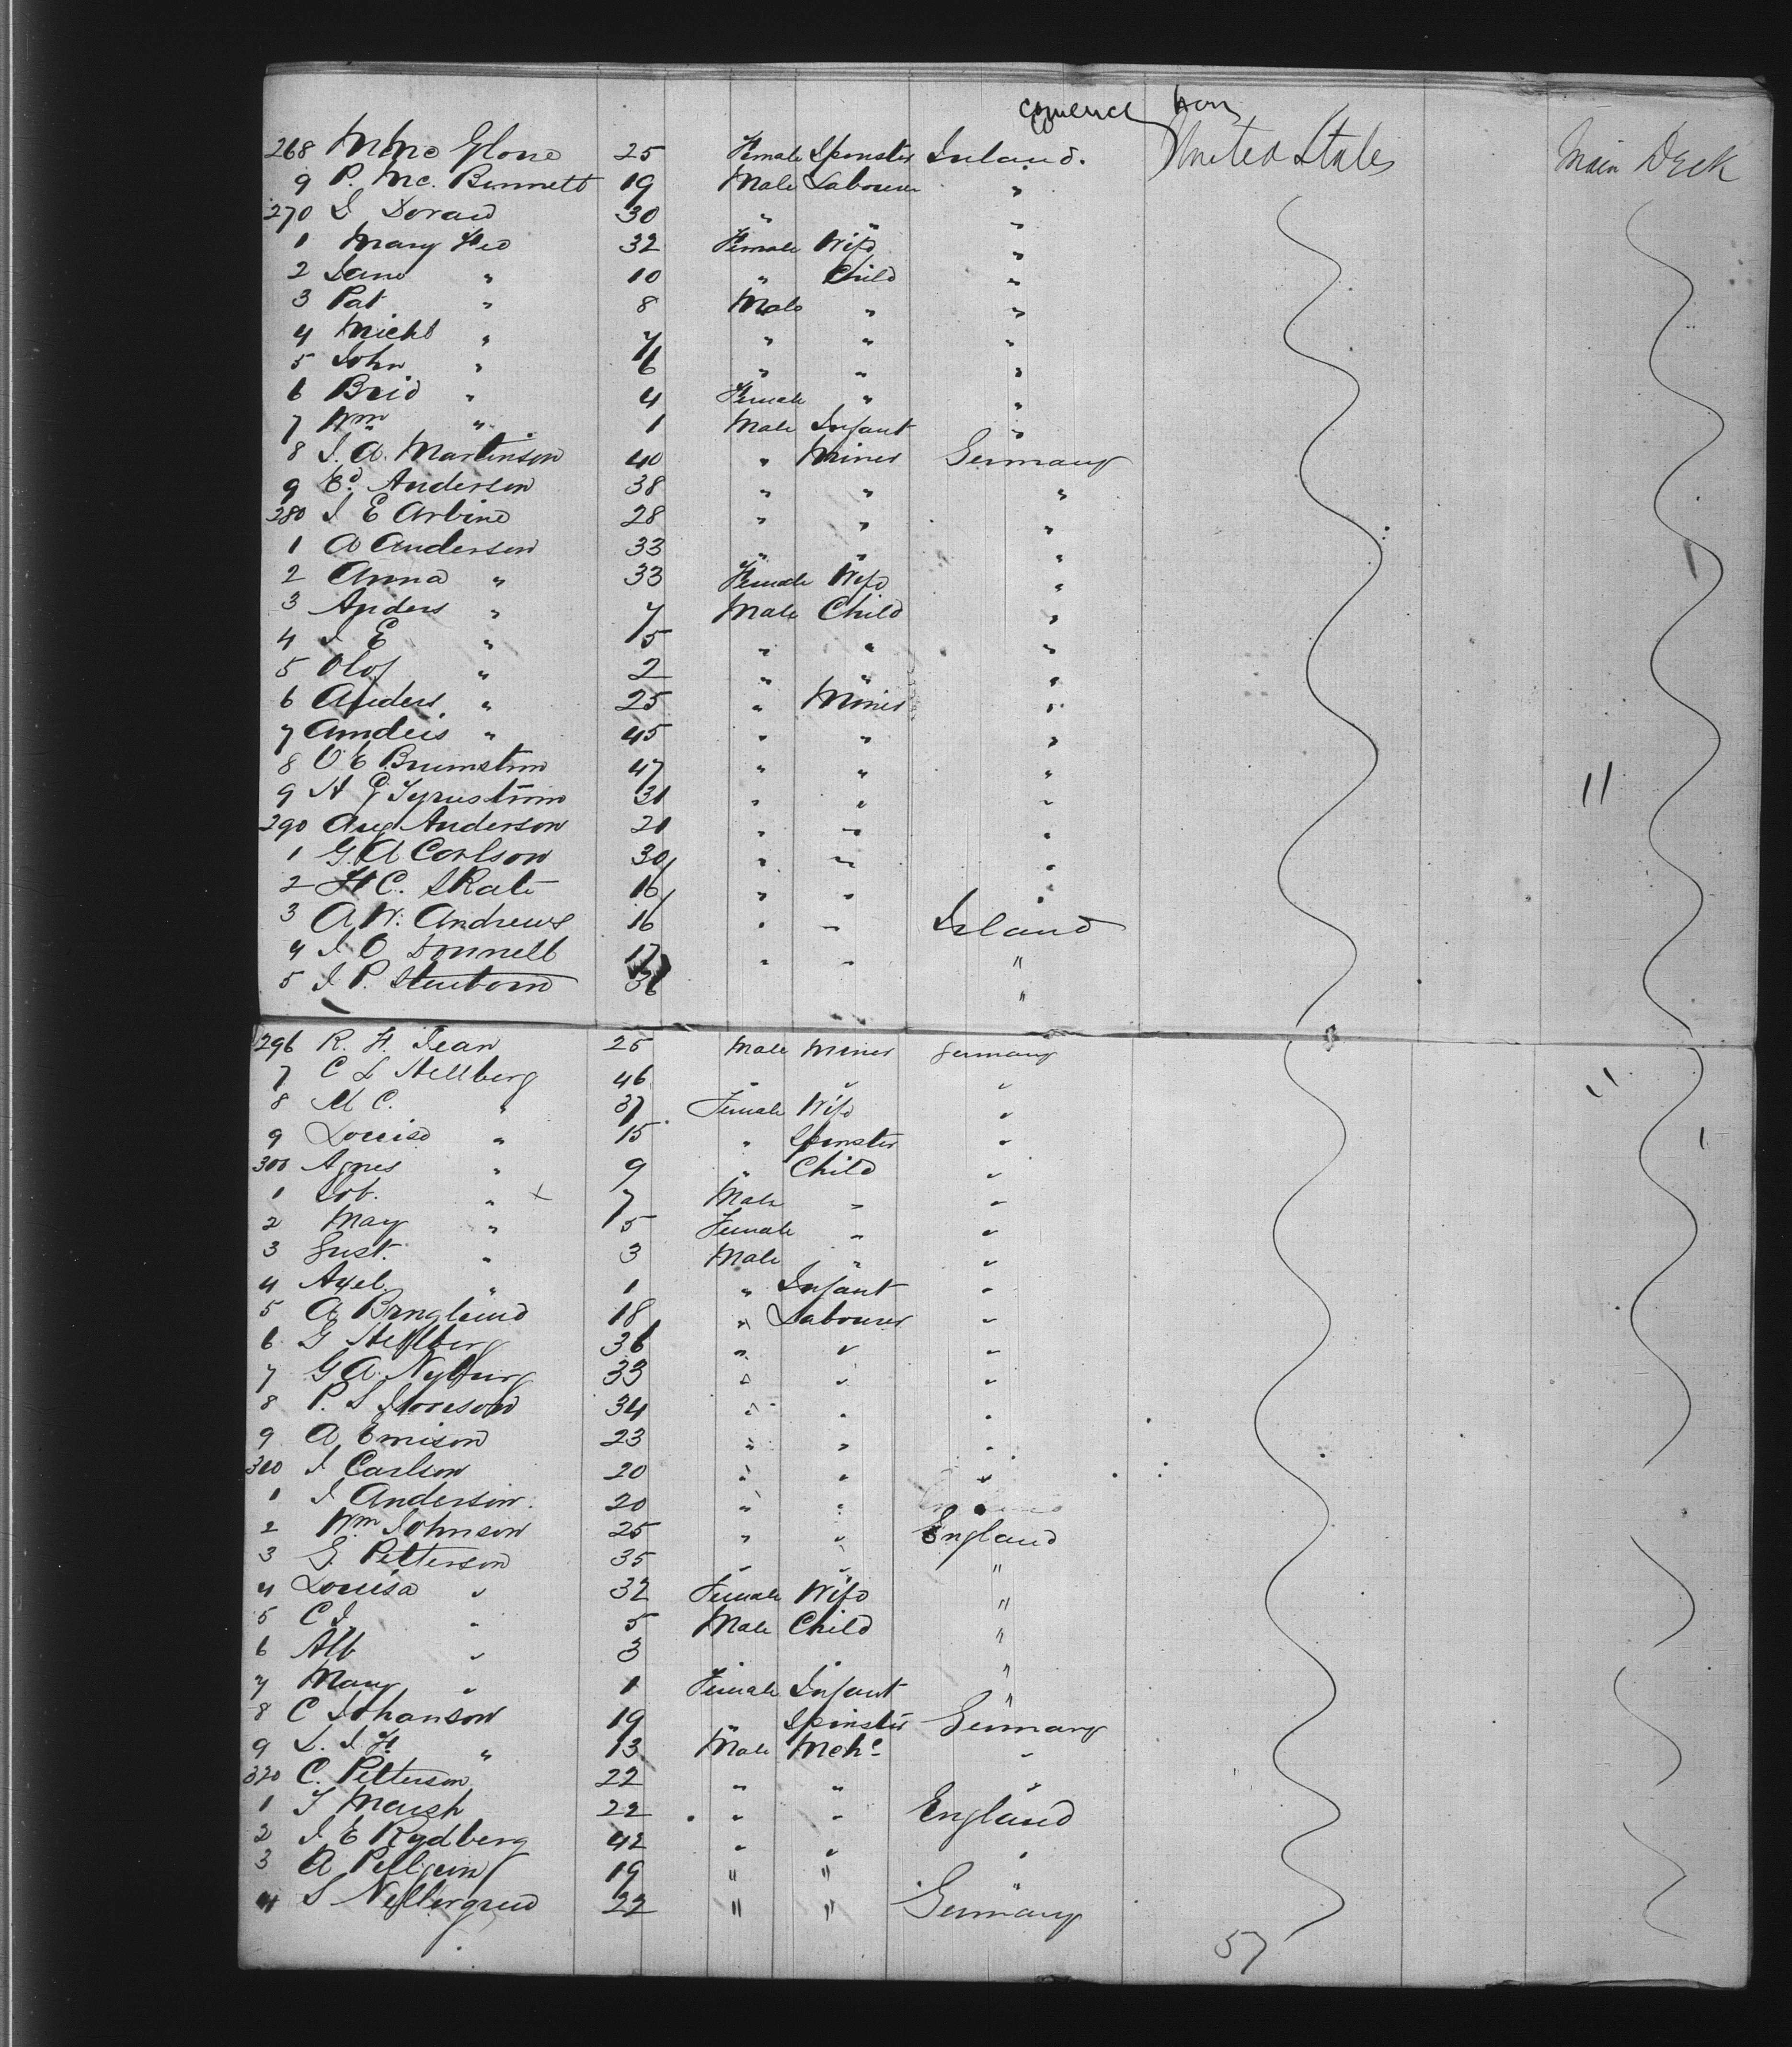 commence here
268 M Mc Glone 25 Female Spinster Ireland. United States Main Deck
9 P. Mc. Bennett 19 Male Labourer "
270 J Doran 30 " " "
1 Mary 32 Female Wife "
2 Jane " 10 " Child "
3 Pat " 8 Male " "
4 Michl " 7 " " "
5 John " 6 " " "
6 Brid " 4 Female " "
7 Wm " 1 Male Infant "
8 J. A. Martinson 40 " Miner Germany
9 Ed. Anderson 38 " " "
280 J E Arbine 28 " " "
1 A Anderson 33 " " "
2 Anna " 33 Female Wife "
3 Anders " 7 Male Child "
4 J E " 5 " " "
5 Olof " 2 " " "
6 Anders " 25 " Miner "
7 Anders " 45 " " "
8 O E Brumstrom 47 " " "
9 H G 31 " " "
290 Aug Anderson 21 " " "
1 G. A Carlson 30 " " "
2 H C. Skate 16 " " "
3 A W. Andrews 16 " " Ireland
4 J O Donnell 17 " " "
5 J. P. 36 "
296 R. H. Dean 25 Male Miner Germany
7 C L Hellberg 46 " " "
8 M C. " 37 Female Wife "
9 Louisa " 15 " Spinster "
300 Agnes " 9 " Child "
1 " x 7 Male " "
2 May " 5 Female " "
3 Gust. " 3 Male " "
4 Axel " 1 " Infant "
5 A Bringlund 18 " Labourer "
6 G Hellberg 36 " " "
7 G A. Nyberg 33 " " "
8 P. S 34 " " "
9 A Emison 23 " " "
310 J Carlson 20 " " "
1 J Anderson. 20 " "
2 Wm Johnson 25 " " England
3 G. Petterson 35 " " "
4 Louisa " 32 Female Wife "
5 C J. " 5 Male Child "
6 Alb " 3 " " "
7 Mary " 1 Female Infant "
8 C Johanson 19 " Spinster Germany
9 L. J. H. " 13 Male Mchc "
320 C. Petterson 22 " " "
1 F Marsh 22 " " England
2 J E Rydberg 42 " " "
3 A Pellgrim 19 " " "
4 S Nellergren 22 " " Germany
57